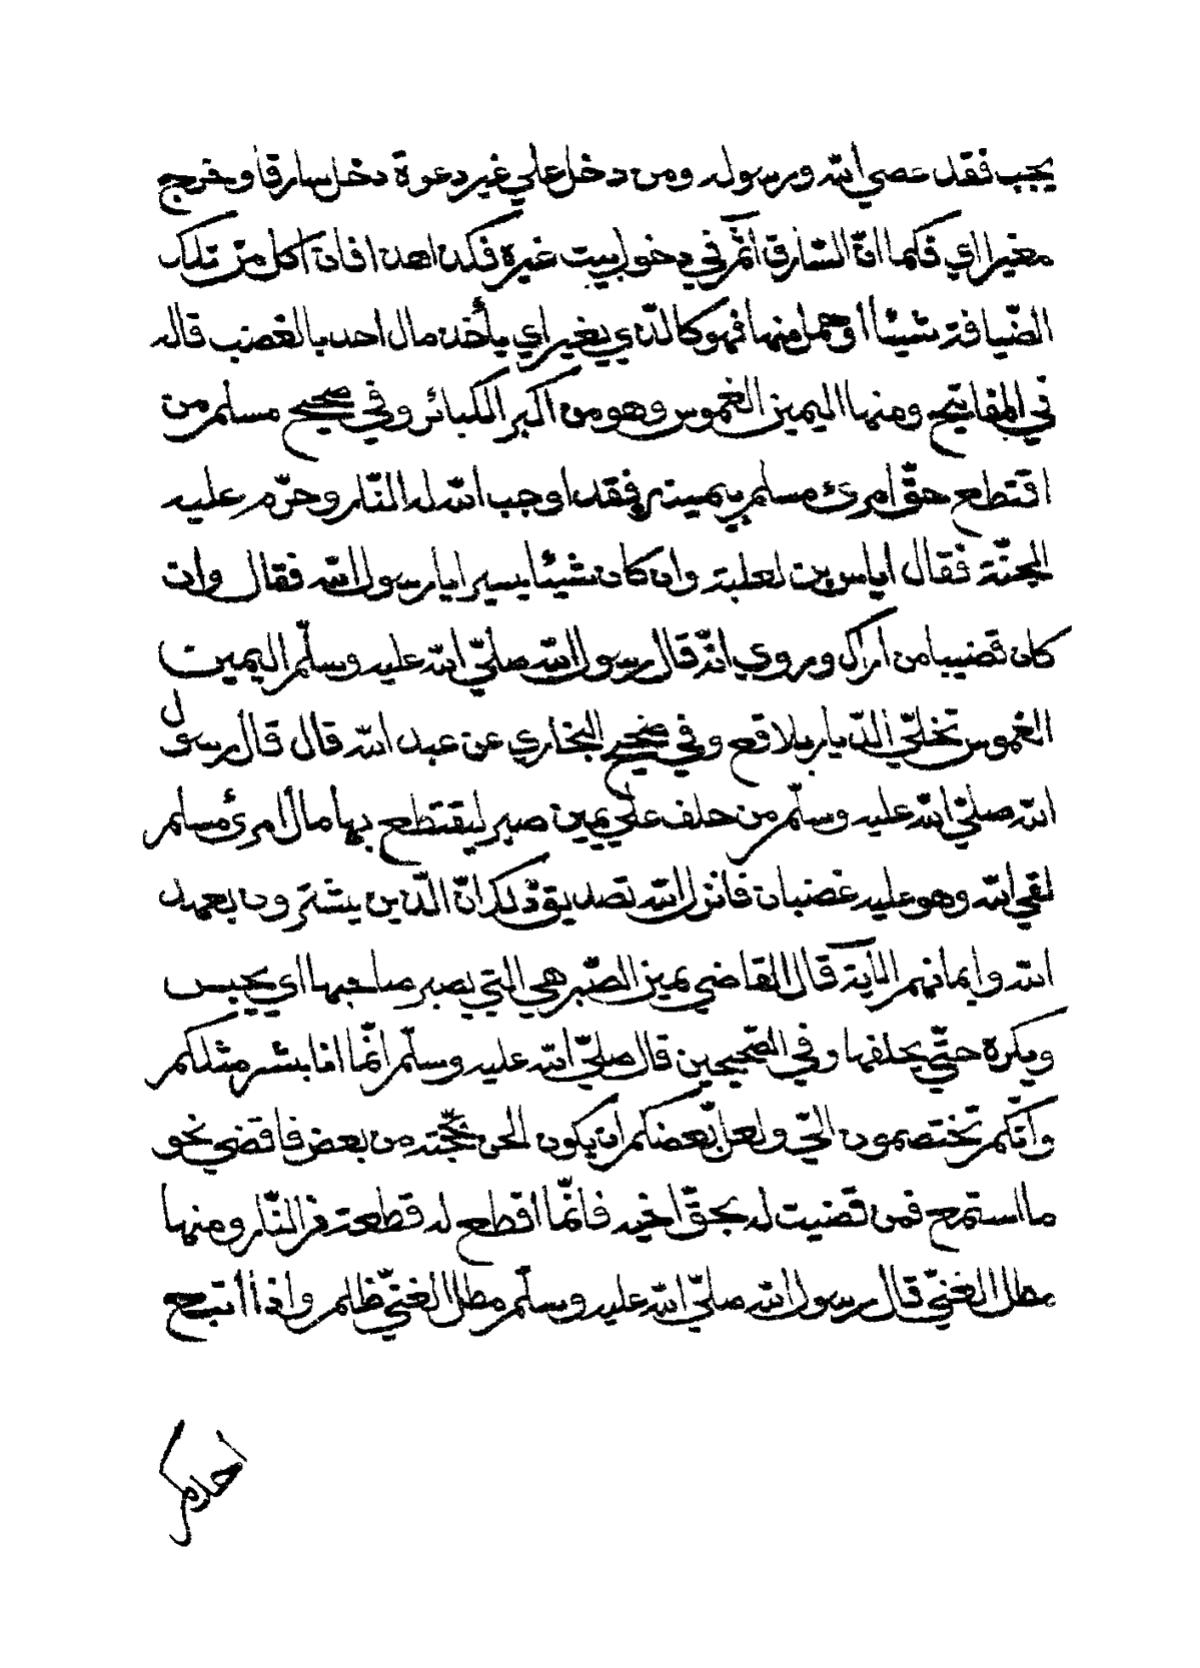 يجب فقد عصي الله ورسوله ومن دخل علي غير دعوة دخل سارقا وخرج
مغيرا اي فكما انّ السّارق اثم في دخول بيت غيره فكذا هذا فان اكل من تلك
الضّيافة شيئا او حمل منها فهو كالّذي يغير اي يأخذ مال احد بالغصب قاله
في المفاتيح ومنها اليمين الغموس وهو من اكبر الكبائر وفي صحيح مسلم من
اقتطع حقّ امرئ مسلم بيمينه فقد اوجب الله له النّار وحرّم عليه
الجنّة فقال اياس بن ثعلبة وان كان شيئا يسيرا يا رسول الله فقال وان
كان قضيبا من اراك وروي انّه قال رسول الله صلّي الله عليه وسلّم اليمين
الغموس تخلّي الدّيار بلاقع وفي صحيح البخاري عن عبد الله قال قال رسول
الله صلّي الله عليه وسلّم من حلف علي يمين صبر ليقتطع بها مال امرئ مسلم
لقي الله وهو عليه غضبان فانزل الله تصديق ذلك انّ الّذين يشترون بعهد
الله وايمانهم الآية قال القاضي يمين الصّبر هي التي يصبر صاحبها اي يحبس
ويكره حتّي يحلفها وفي الصّحيحين قال صلّي الله عليه وسلّم انّما انا بشر مثلكم
وانّكم تختصمون اليّ ولعلّ بعضكم ان يكون الحن بحجّته من بعض فاقضي نحو
ما استمع فمن قضيت له بحقّ اخيه فانّما اقطع له قطعة من النّار ومنها
مطل الغنيّ قال رسول الله صلّي الله عليه وسلّم مطل الغنيّ ظلم واذا اتبع
احدكم